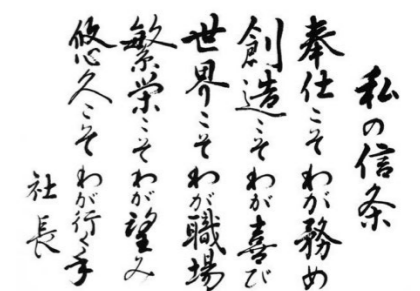 私の信条
奉仕こそわが務め
創造こそわが喜び
世界こそわが職場
繁栄こそわが望み
悠久こそわが行く手
社長